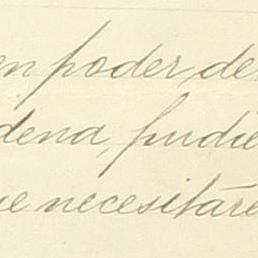 en poder de
dena, pudie
ue necesitáre